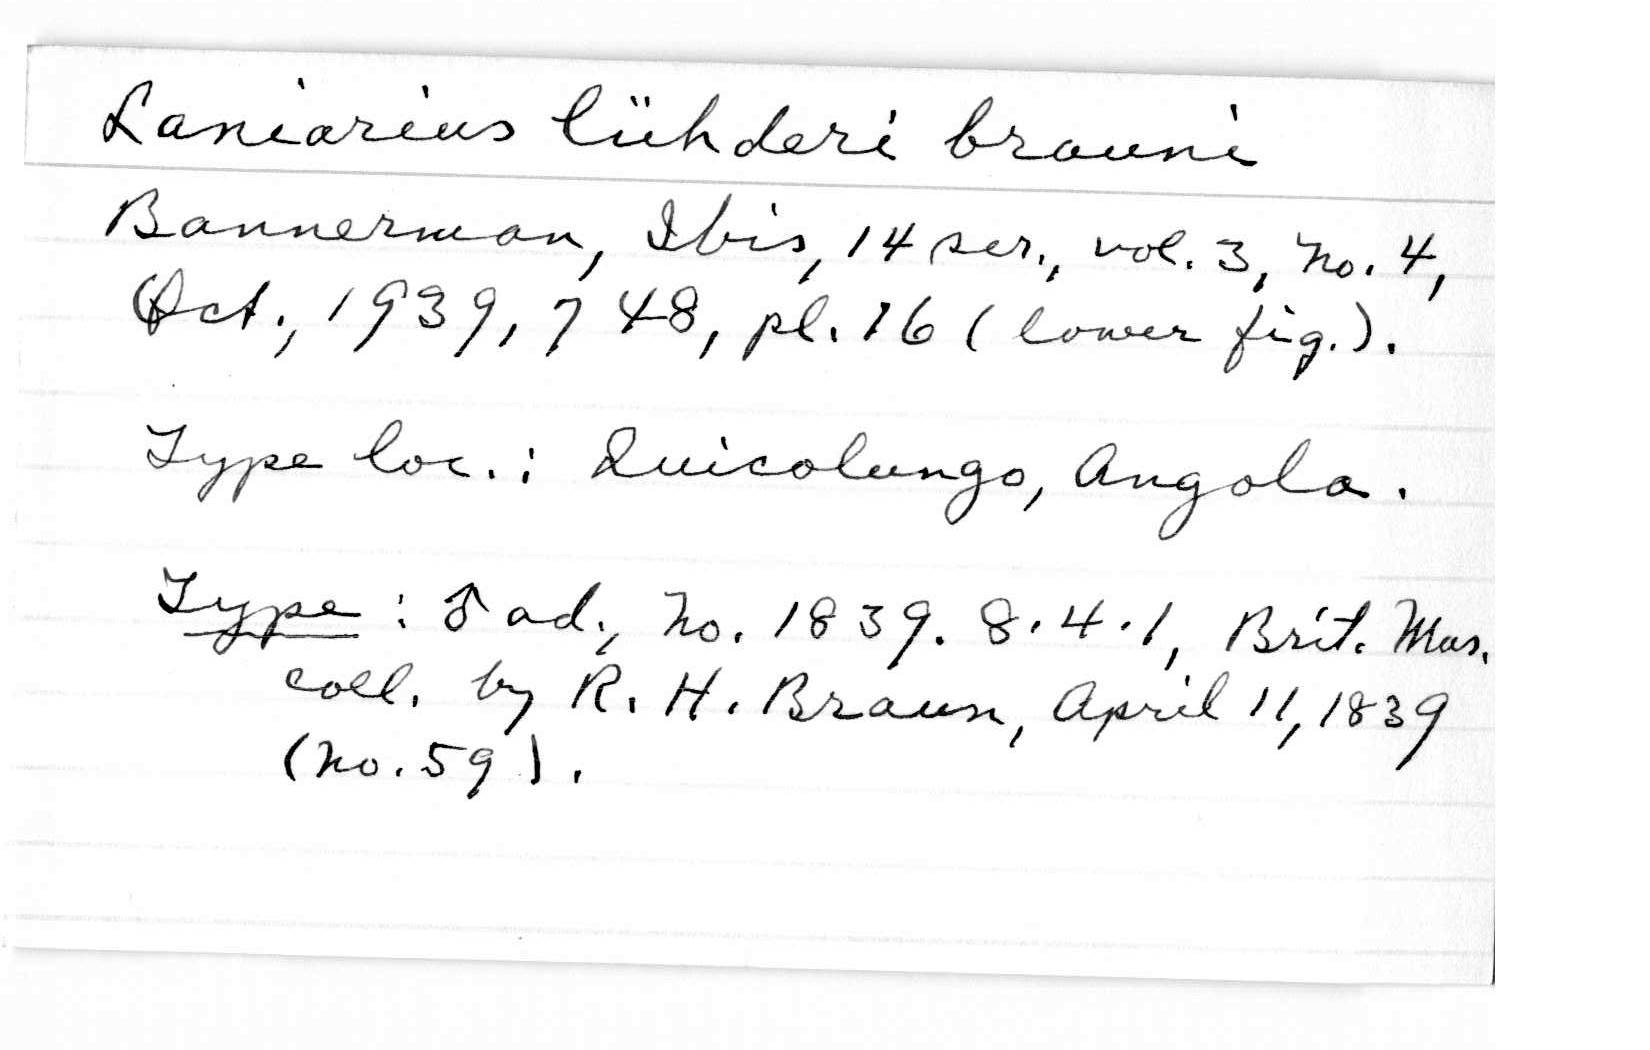 Laniarius lühderi brauni
Bannerman, Ibis, 14 ser., vol. 3, no. 4,
Oct., 1939, 748, pl. 16 (lower fig.).
Type loc.: Quicolungo, Angola.
Type: ♂ ad., no. 1839.8.4.1, Brit. Mus.
coll. by R. H. Braun, April 11, 1839
(no. 59).